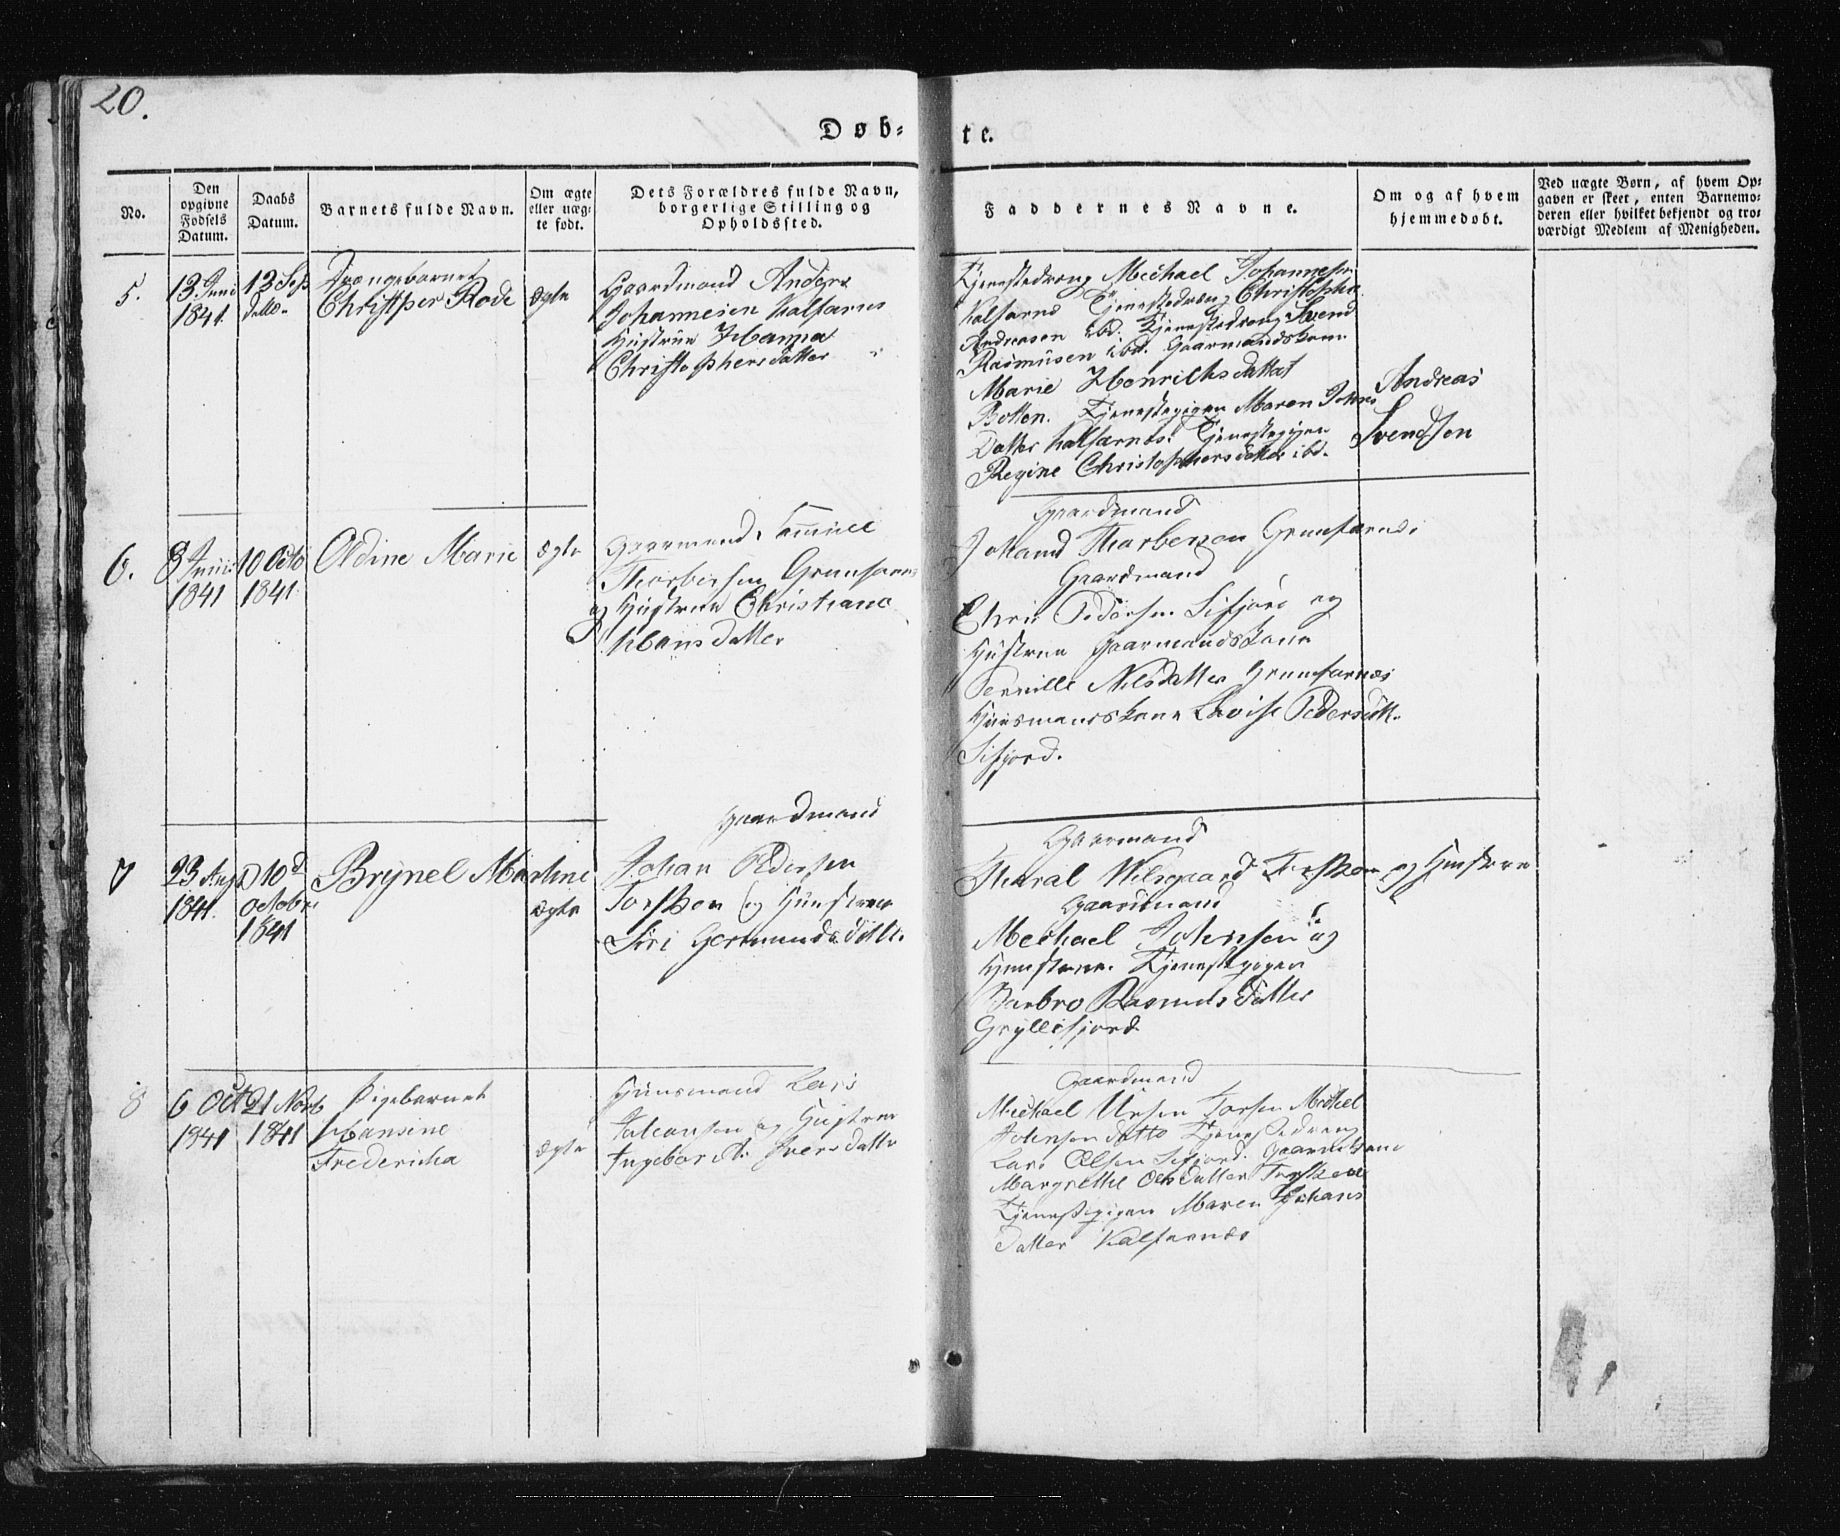 20.
Døb-
te.
No.
Den
opgivne
Fødsels
Datum.
Daabs
Datum.
Barnets fulde Navn.
Om ægte
eller uæg-
te født.
Dets Forældres fulde Navn,
borgerlige Stilling og
Opholdssted.
Faddernes Navne.
Om og af hvem
hjemmedøbt.
Ved uægte Børn, af hvem Op-
gaven er skeet, enten Barnemo-
deren eller hvilket bekjendt og tro-
værdigt Medlem af Menigheden.
5.
13 Juni
1841.
13 Sep
Drængebarnet
Christpher Rode
ægte
Gaardmand Anders
Johannesen Kalfarnes
Hustrue Hanna
Christophersdatter
Tjenestedræng Mechael Johannesen
Kalfarnes Tjenestedræng Christopher
Andreasen ibd. Tjenestedræng Svend
Rasmusen ibd. Gaarmandskone
Marie Henrichsdatter
Botten. Tjenestepigen Maren Johns
Datter Kalfarnes. Tjenestepigen
Regine Christophersdatter ibd.
Andreas
Svendsen
6.
8 Juni
1841
10 Octo
1841
Oldine Marie
ægte
Gaarmand
Thorbersen Grunfarnes
og Hustrue Christiane
Hansdatter
Gaardmand
Thorbersen Grunfarnes
Gaardmand
Pedersen Sifjord og
Hustrue Gaarmandskone
Pernille Nilsdatter Grunfarnes
Huusmanskone Lovise Pedersdatt.
Sifjord.
7
23 Aug
1841.
D 10d
Octobr
1841
Brynel Martine
ægte
Gaardmand
Johan Pedersen
Torsken og Hunstrue
Siri Germundsdatt.
Gaarmand
Torsken og Hunstrue
Gaardmand
Mechael Johnsen og
Hunstrue. Tjenestepigen
Barbro Rasmusdatter
Gryllefjord
8
6 Oct
1841
21 Novb
1841
Pigebarnet
Hansine
Fredericha
ægte
Huusmand Lars
og Hustrue
Iversdatter
Gaardmand
Michael Torsken Michel
Johnsen ditto Tjenestedreng
Lars Olsen Sifjord. Gaardm.kone
Margrethe Olsdatter Torsken
Tjenestepigen Maren Johans
Datter Kalfarnes